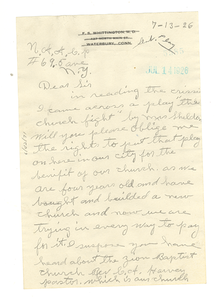 7-13-26
F. S. WHITTINGTON M.D.
WATERBURY, CONN.
N.A.A.C.P.
# 69 5 ave
N.Y.
JUL 14 1926
Dear Sir
in reading the crisis
I came across a play the
church fight by Mrs
will you please oblige me
the right to put the play
on here in our city for the
benifit of our church, as we
are four years old and have
bought and builded a new
church and now we are
trying in every way to pay
for it. I supose you have
heard about the Zion Baptist
Church, Rev. Harvey
pastor, which is our church